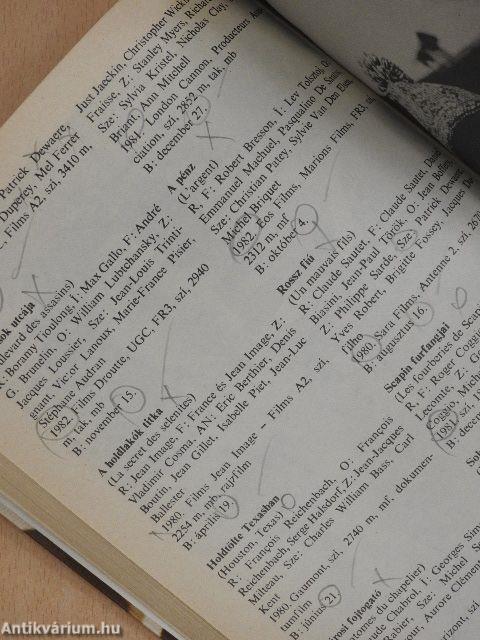 Patrick Dewaere,
Duperey, Mel Ferrer
Films A2, szí, 3410 m,
ok utcája
levard des assassins)
R: Boramy Tioulong, I: Max Gallo, F: André
G. Brunelin, O: William Lubtchansky, Z:
Jacques Loussier, Sze: Jean-Louis Trinti-
gnant, Victor Lanoux, Marie-France Pisier,
Stéphane Audran
1982. Films Droutte, UGC, FR3, szí, 2940
m, tak, ms
B: november 15.
A holdlakók titka
(La secret des selenites)
R: Jean Image, F: France és Jean Image, Z:
Vladimir Cosma, AN: Eric Berthier, Denis
Boutin, Jean Gillet, Isabelle Piet, Jean-Luc
Ballester
1980. Films Jean Image – Films A2, szí,
2254 m, mb, rajzfilm
B: április 19.
Holdtölte Texasban
(Houston, Texas)
R: François Reichenbach, O: François
Reichenbach, Serge Halsdorf, Z: Jean-Jacques
Milteau, Sze: Charles William Bass, Carl
Kent
1980. Gaumont, szí, 2740 m, mf, dokumen-
tumfilm
B: június 21.
Just Jaeckin, Christopher Wicki
Fraisse, Z: Stanley Myers, Richar
Sze: Sylvia Kristel, Nicholas Clay,
Briant, Ann Mitchell
1981. London Cannon, Producteurs Ass
ciation, szí, 2852 m, tak, mb
B: december 27.
A pénz
(L'argent)
R, F: Robert Bresson, I: Lev Tolsztoj, O:
Emmanuel Machuel, Pasqualino De Santis,
Sze: Christian Patey, Sylvie Van Den Elsen,
Michel Briguet
1982. Eos Films, Marions Films, FR3,
2312 m, mf
B: október 4.
Rossz fiú
(Un mauvais fils)
R: Claude Sautet, F: Claude Sautet, Dan
Biasini, Jean-Paul Török, O: Jean Boffety,
Z: Philippe Sarde, Sze: Patrick Dewaer
Yves Robert, Brigitte Fossey, Jacques Du
filho
1980. Sara Films, Antenne 2, szí, 267
B: augusztus 16.
Scapin furfangjai
(Les fourberies de Scap
R, F: Roger Coggio
Lecomte, Z:
Coggio, Miche
1981. szí, 1
B: decem
Sol
fojtogató
tômes du chapelier)
de Chabrol, I: Georges Sim
Sze: Michel S
r, Aurore Clémen
izont, szí,
Antikvárium.hu